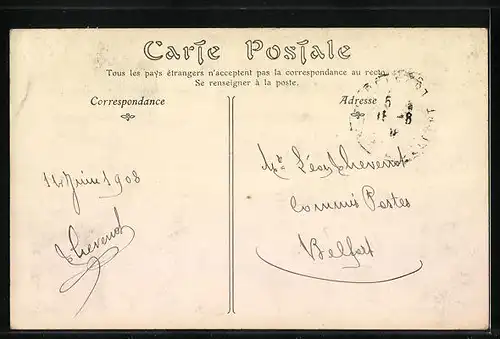 Carte Postale
Tous les pays étrangers n'acceptent pas la correspondance au recto
Se renseigner à la poste.
Correspondance
Adresse
14 Juin 1908
Thevenot
Mr Léon Thevenot
Commis Postes
Belfort